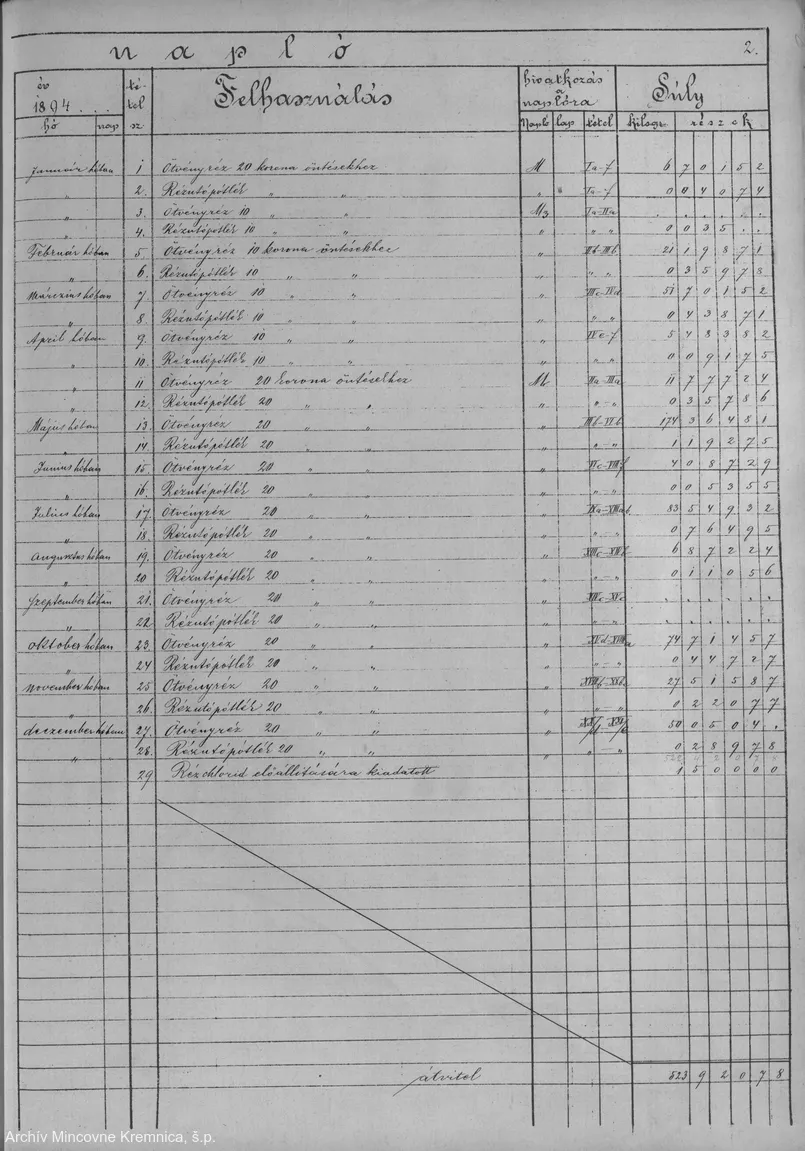 napló 2.
év 1894... té-tel sz. Felhasználás hivatkozás a naplóra Súly
hó nap Napló lap tétel kilogr. részek
Január hóban 1 Ötvényréz 20 korona öntésekhez M Ia-f 6 7 0 1 5 2
" 2. Rézutópótlék " " " " Ia-f 0 0 4 0 7 4
" 3. Ötvényréz 10 " " Ia-IIa . . . . . .
" 4. Rézutópótlék 10 " " " " " 0 0 3 5 . .
Február hóban 5. Ötvényréz 10 korona öntésekhez " IIb-IIIb 21 1 9 8 7 1
" 6. Rézutópótlék 10 " " " " " 0 3 5 9 7 8
Márczius hóban 7. Ötvényréz 10 " " " IIIc-IVd 51 7 0 1 5 2
" 8 Rézutópótlék 10 " " " " " 0 4 3 8 7 1
April hóban 9. Ötvényréz 10 " " " IVe-f 5 4 8 3 8 2
" 10. Rézutópótlék 10 " " " " " 0 0 9 1 7 5
" 11 Ötvényréz 20 korona öntésekhez IIa-IIIa 11 7 7 7 2 4
" 12. Rézutópótlék 20 " " " " " 0 3 5 7 8 6
Május hóban 13. Ötvényréz 20 " " " IIIb-VIb 174 3 6 4 8 1
" 14. Rézutópótlék 20 " " " " " 1 1 9 2 7 5
Junius hóban 15. Ötvényréz 20 " " " 4 0 8 7 2 9
" 16. Rézutópótlék 20 " " " " - " 0 0 5 3 5 5
Július hóban 17. Ötvényréz 20 " " " 83 5 4 9 3 2
" 18. Rézutópótlék 20 " " " " - " 0 7 6 4 9 5
Augusztus hóban 19. Ötvényréz 20 " " " 6 8 7 2 2 4
" 20 Rézutópótlék 20 " " " " - " 0 1 1 0 5 6
Szeptember hóban 21. Ötvényréz 20 " " " . . . . . .
" 22 Rézutópótlék 20 " " " " - " . . . . . .
Oktober hóban 23. Ötvényréz 20 " " " 74 7 1 4 5 7
" 24 Rézutópótlék 20 " " " " - " 0 4 4 7 2 7
November hóban 25 Ötvényréz 20 " " " 27 5 1 5 8 7
" 26. Rézutópótlék 20 " " " " - " 0 2 2 0 7 7
deczember hóban 27. Ötvényréz 20 " " " 50 0 5 0 4 .
" 28. Rézutópótlék 20 " " " " - " 0 2 8 9 7 8
29 Rézchlorid előállitására kiadatott 1 5 0 0 0 0
átvitel 523 9 2 0 7 8
Archív Mincovne Kremnica, š.p.